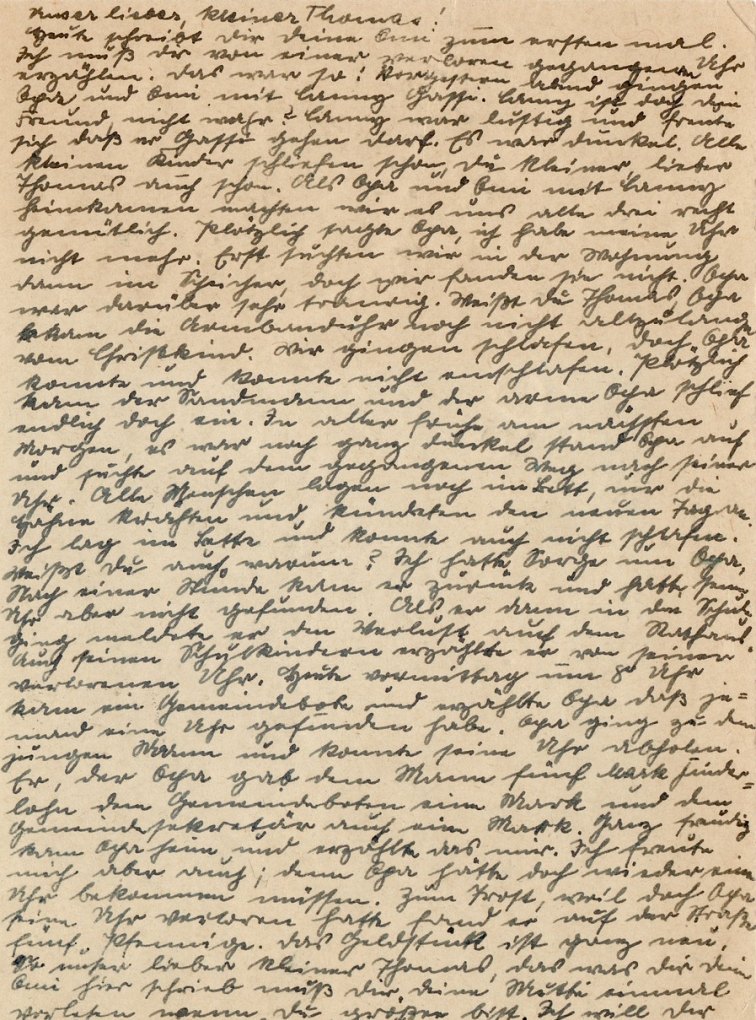 Unser lieber, kleiner Thomas!
Heute schreibt dir deine Omi zum ersten mal.
Ich muß dir von einer verloren gegangenen Uhr
erzählen. Das war so: Vorgestern abend gingen
Opa und Omi mit Lanny Gassi. Lanny ist doch dein
Freund, nicht wahr? Lanny war lustig und freute
sich daß er Gassi gehen darf. Es war dunkel. Alle
kleinen Kinder schliefen schon, du kleiner, lieber
Thomas auch schon. Als Opa und Omi mit Lanny
heimkamen machten wir es uns alle drei recht
gemütlich. Plötzlich sagte Opa, ich habe meine Uhr
nicht mehr. Erst suchten wir in der Wohnung
dann im doch wir fanden sie nicht. Opa
war darüber sehr traurig. Weißt du Thomas, Opa
bekam die Armbanduhr noch nicht allzulange
vom Christkind. Wir gingen schlafen, doch Opa
konnte und konnte nicht einschlafen. Plötzlich
kam der Sandmann und der arme Opa schlief
endlich doch ein. In aller frühe am nächsten
Morgen, es war noch ganz dunkel stand Opa auf
und suchte auf dem gegangenen Weg nach seiner
Uhr. Alle Menschen lagen noch im Bett, nur die
Hähne krähten und kündeten den neuen Tag an.
Ich lag im Bette und konnte auch nicht schlafen.
Weißt du auch warum? Ich hatte Sorge um Opa,
Nach einer Stunde kam er zurück und hatte seine
Uhr aber nicht gefunden. Als er dann in die Schule
ging meldete er den Verlust auch dem Rathaus.
Auch seinen Schulkindern erzählte er von seiner
verlorenen Uhr. Heute vormittag um 8 Uhr
kam ein Gemeindebote und erzählte Opa daß je=
mand eine Uhr gefunden habe. Opa ging zu dem
jungen Mann und konnte seine Uhr abholen.
Er, der Opa gab dem Mann fünf Mark Finder=
lohn dem Gemeindeboten eine Mark und dem
Gemeindesekretär auch eine Mark. Ganz freudig
kam Opa heim und erzählte das mir. Ich freute
mich aber auch; denn Opa hätte doch wieder eine
Uhr bekommen müssen. Zum Trost, weil doch Opa
seine Uhr verloren hatte fand er auf der Straße
fünf Pfennige. Das Geldstück ist ganz neu.
So unser lieber kleiner Thomas, das was dir dein
Omi hier schrieb muß dir deine Mutti einmal
vorlesen wenn du größer bist. Ich will der